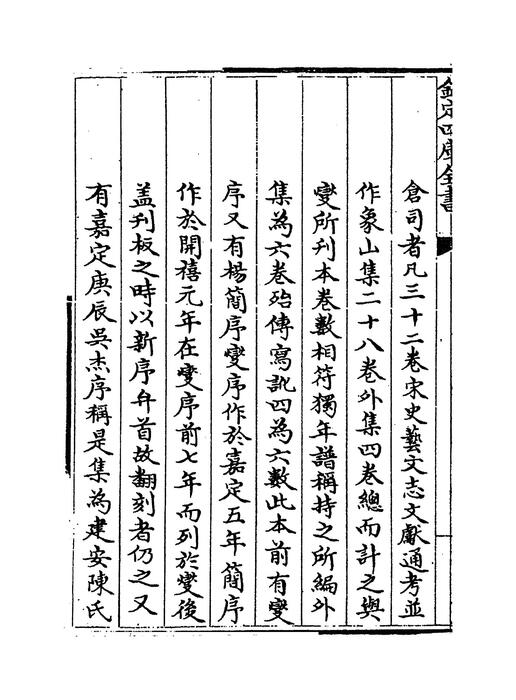 欽定四庫全書
倉司者凡三十二卷宋史藝文志文獻通考並
作象山集二十八卷外集四卷總而計之與
燮所刊本卷數相符獨年譜稱持之所編外
集為六卷殆傳寫訛四為六歟此本前有燮
序又有楊簡序燮序作於嘉定五年簡序
作於開禧元年在燮序前七年而列於燮後
盖刋板之時以新序弁首故翻刻者仍之又
有嘉定庚辰吳杰序稱是集為建安陳氏